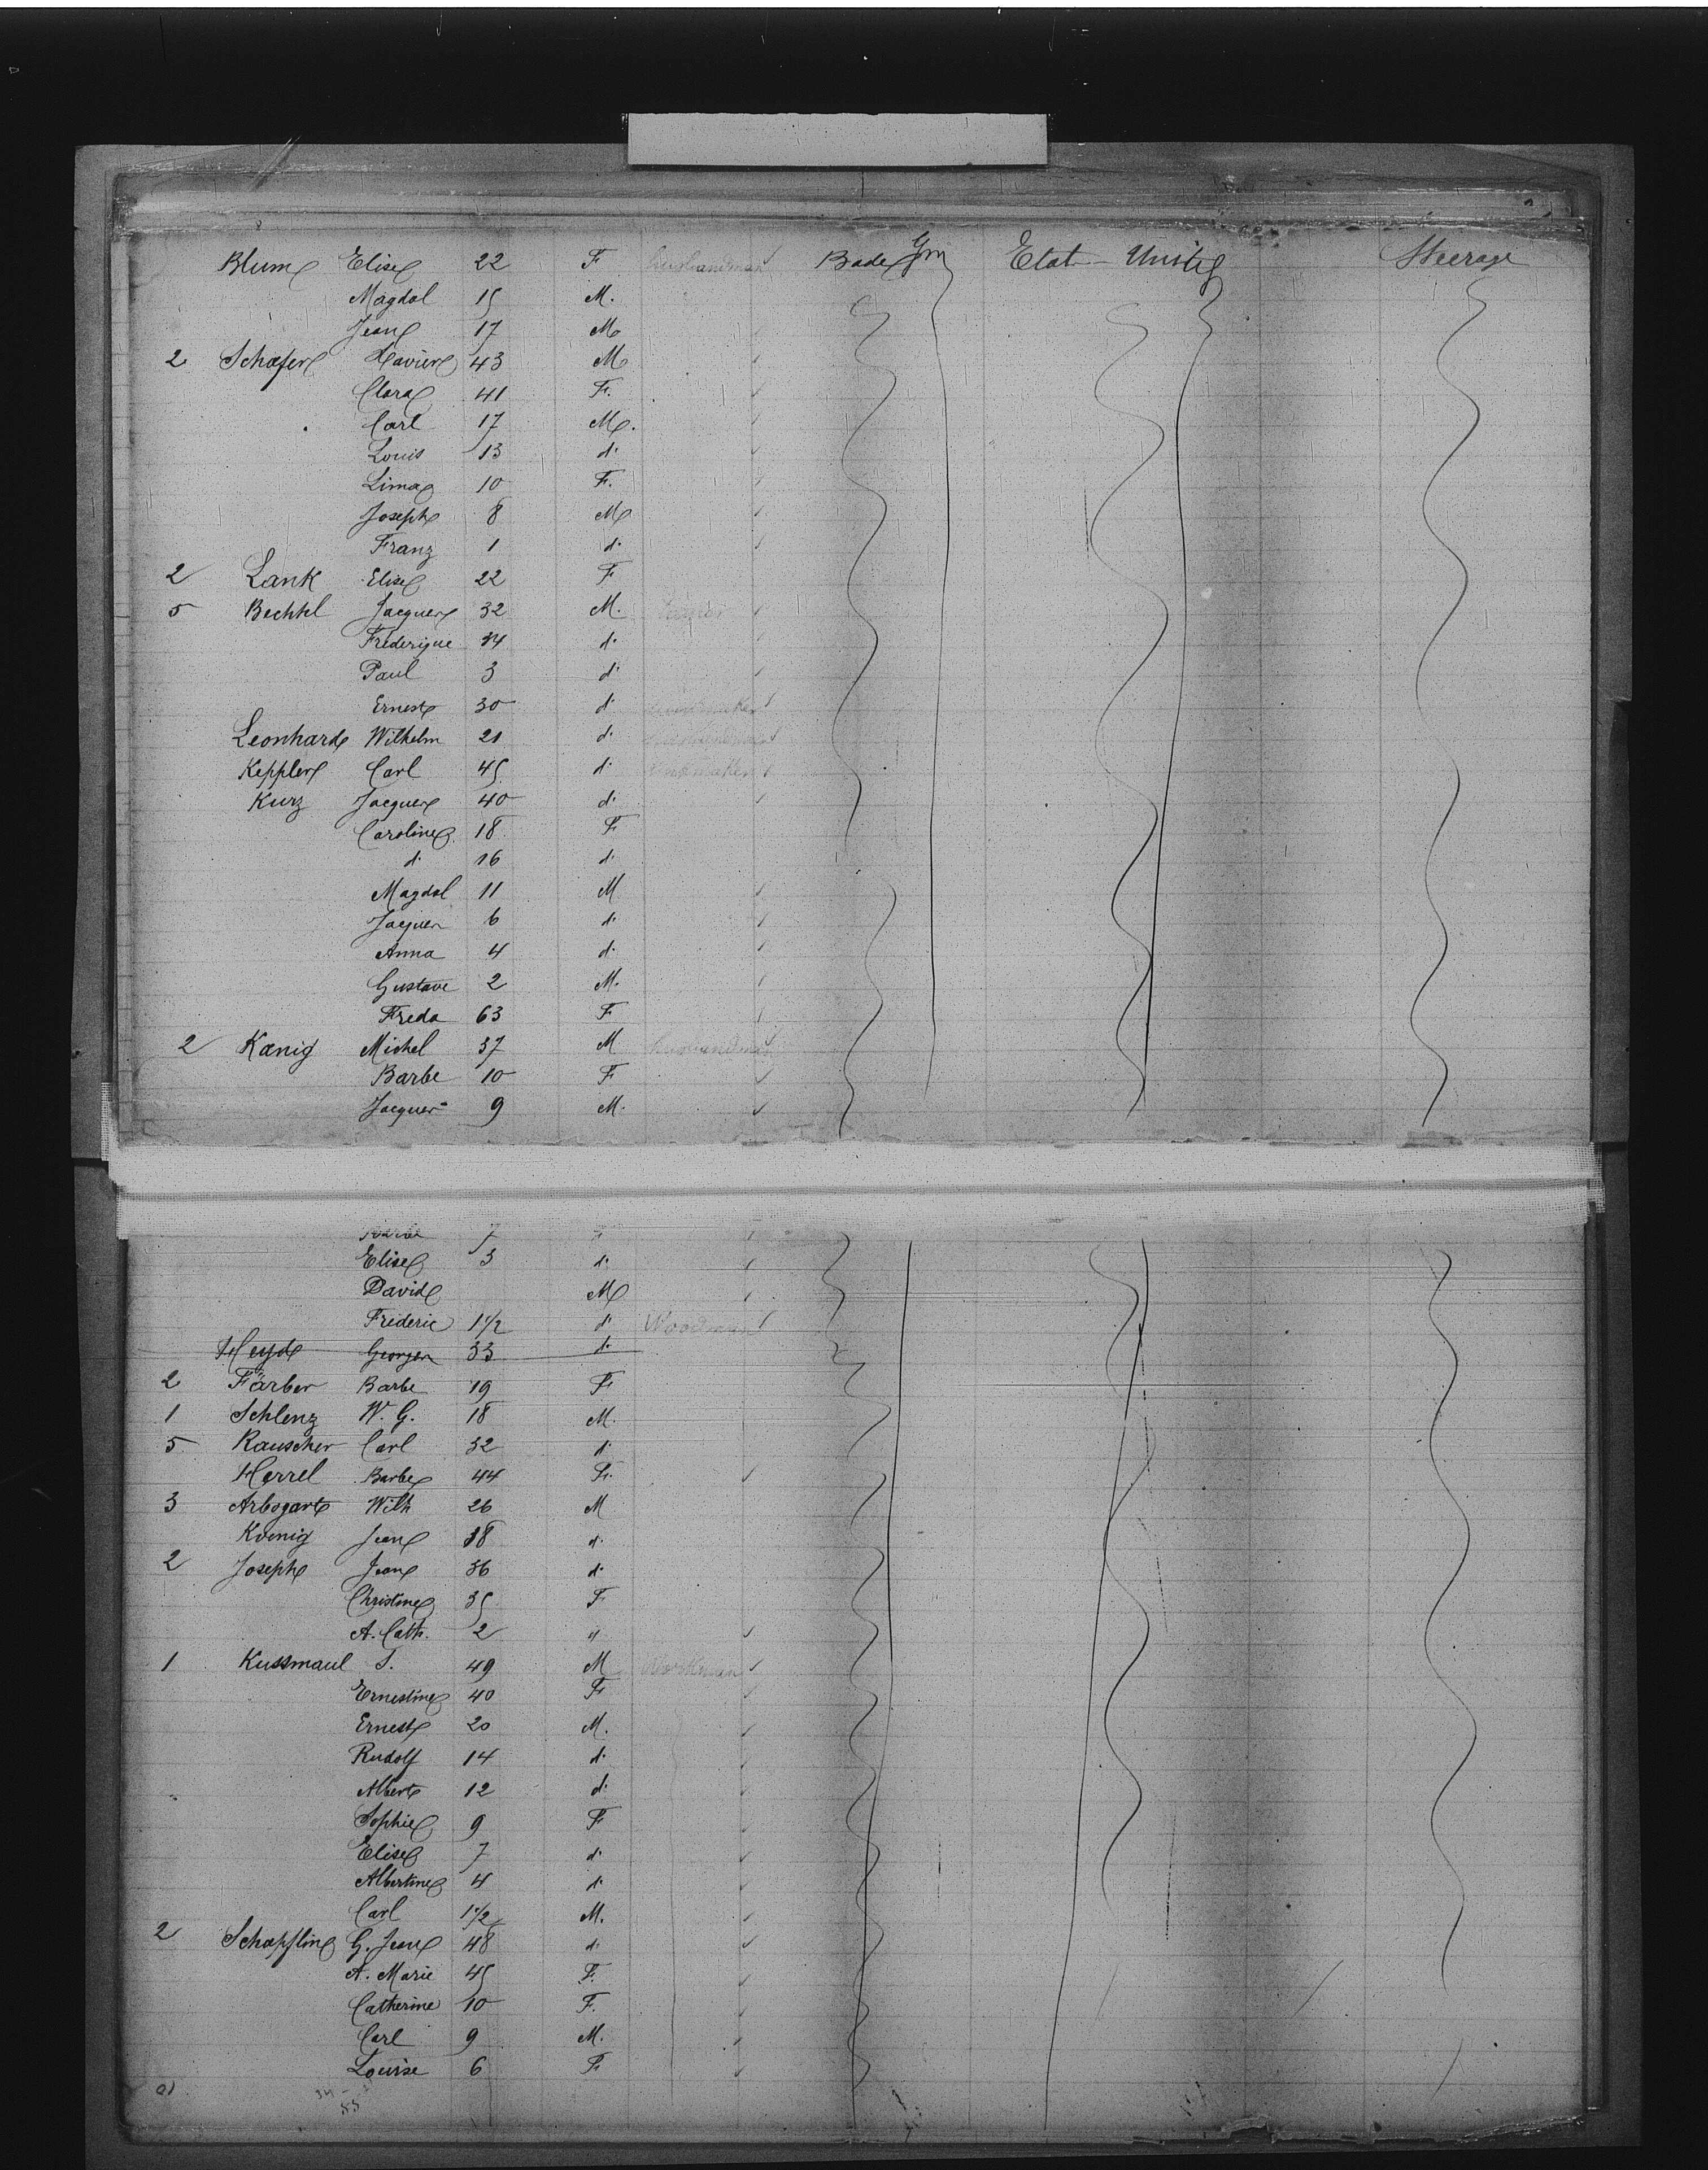 Blum Elise 22 F husbandman Bade Gm Etat-Unis Steerage
Magdal 15 M.
Jean 17 M
2 Schæfer Xavier 43 M
Clara 41 F.
Carl 17 M.
Louis 13 d.
Lima 10 F.
Joseph 8 M
Franz 1 d.
2 Lank Elise 22 F
5 Bechtel Jacques 32 M.
Frederique 34 d.
Paul 3 d.
Ernest 30 d.
Leonhard Wilhelm 21 d.
Keppler Carl 45 d.
Kurz Jacques 40 d.
Caroline 18 F
d. 16 d.
Magdal 11 M
Jacques 6 d.
Anna 4 d.
Gustave 2 M.
Freda 63 F
2 Kœnig Michel 37 M husbandman
Barbe 10 F
Jacques 9 M.
7 F
Elise 3 d.
David M
Frideric 1 1/2 d
Heyd Georges 33 d.
2 Färber Barbe 19 F
1 Schlenz W. G. 18 M.
5 Rauscher Carl 32 d.
Herrel Barbe 44 F.
3 Arbogart Wilh 26 M
Kœnig Jean 38 d.
2 Joseph Jean 36 d.
Christine 35 F
A. Cath. 2 "
1 Kussmaul 49 M Workman
Ernestine 40 F
Ernest 20 M.
Rudolf 14 d.
Albert 12 d.
Sophie 9 F
Elise 7 d.
Albertine 4 d.
Carl 1 1/2 M.
2 Schæpflin G. Jean 48 d.
A. Marie 45 F.
Catherine 10 F.
Carl 9 M.
Louise 6 F